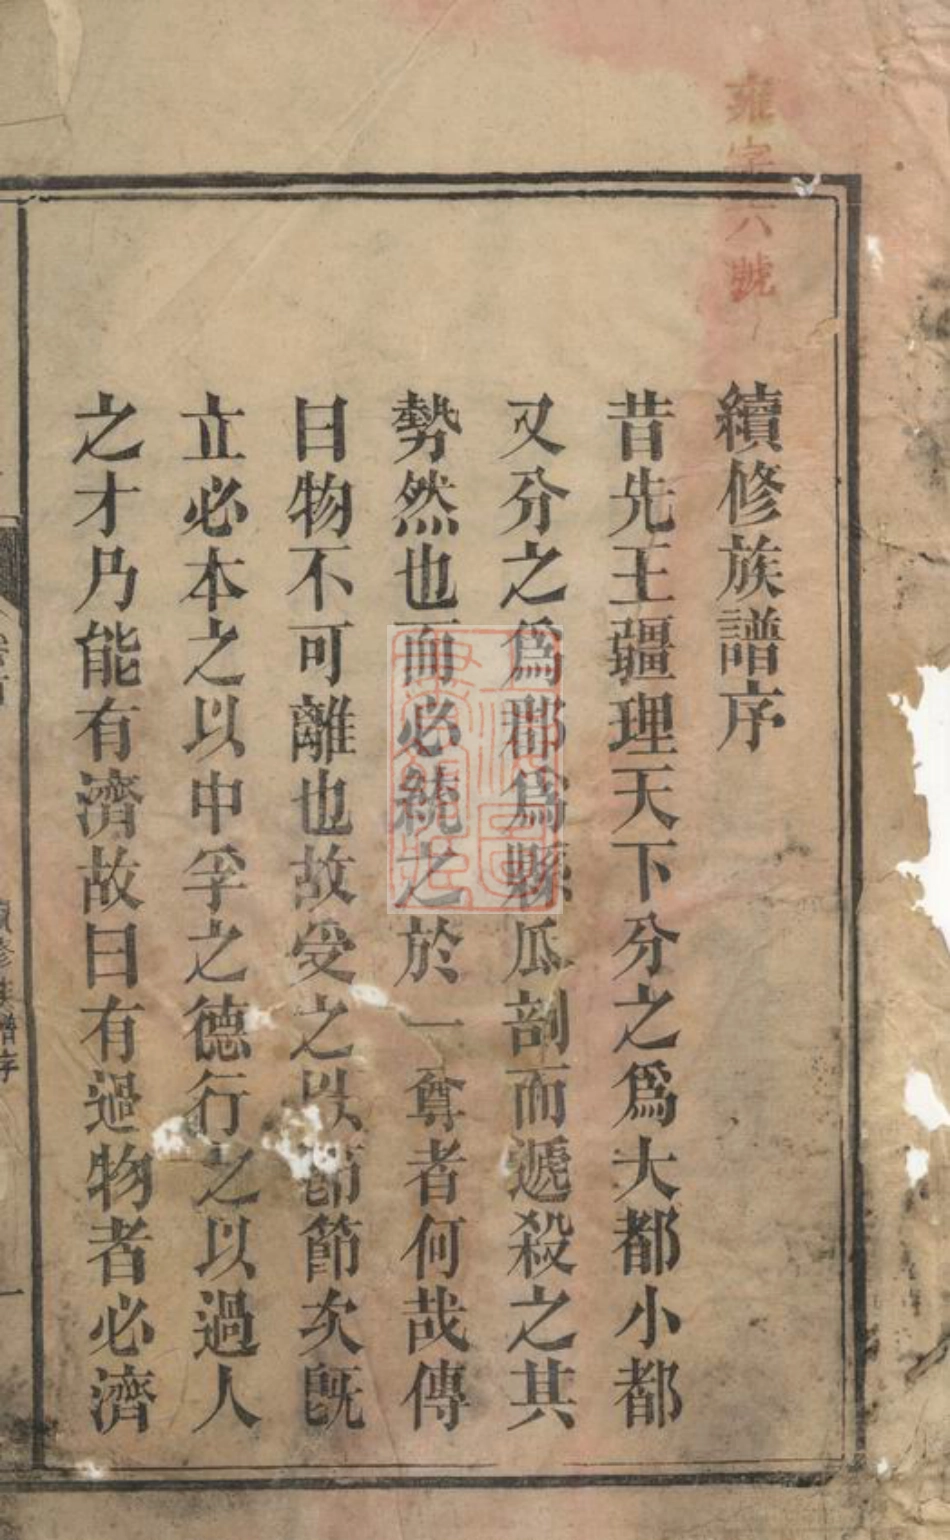 雍字六號
續修族譜序
昔先王疆理天下分之為大都小都
又分之為郡為縣瓜剖而遞殺之其
勢然也而必統之於一尊者何哉傳
曰物不可離也故受之以節節次既
立必本之以中孚之德行之以過人
之才乃能有濟故曰有過物者必濟
卷首
續修族譜序
一